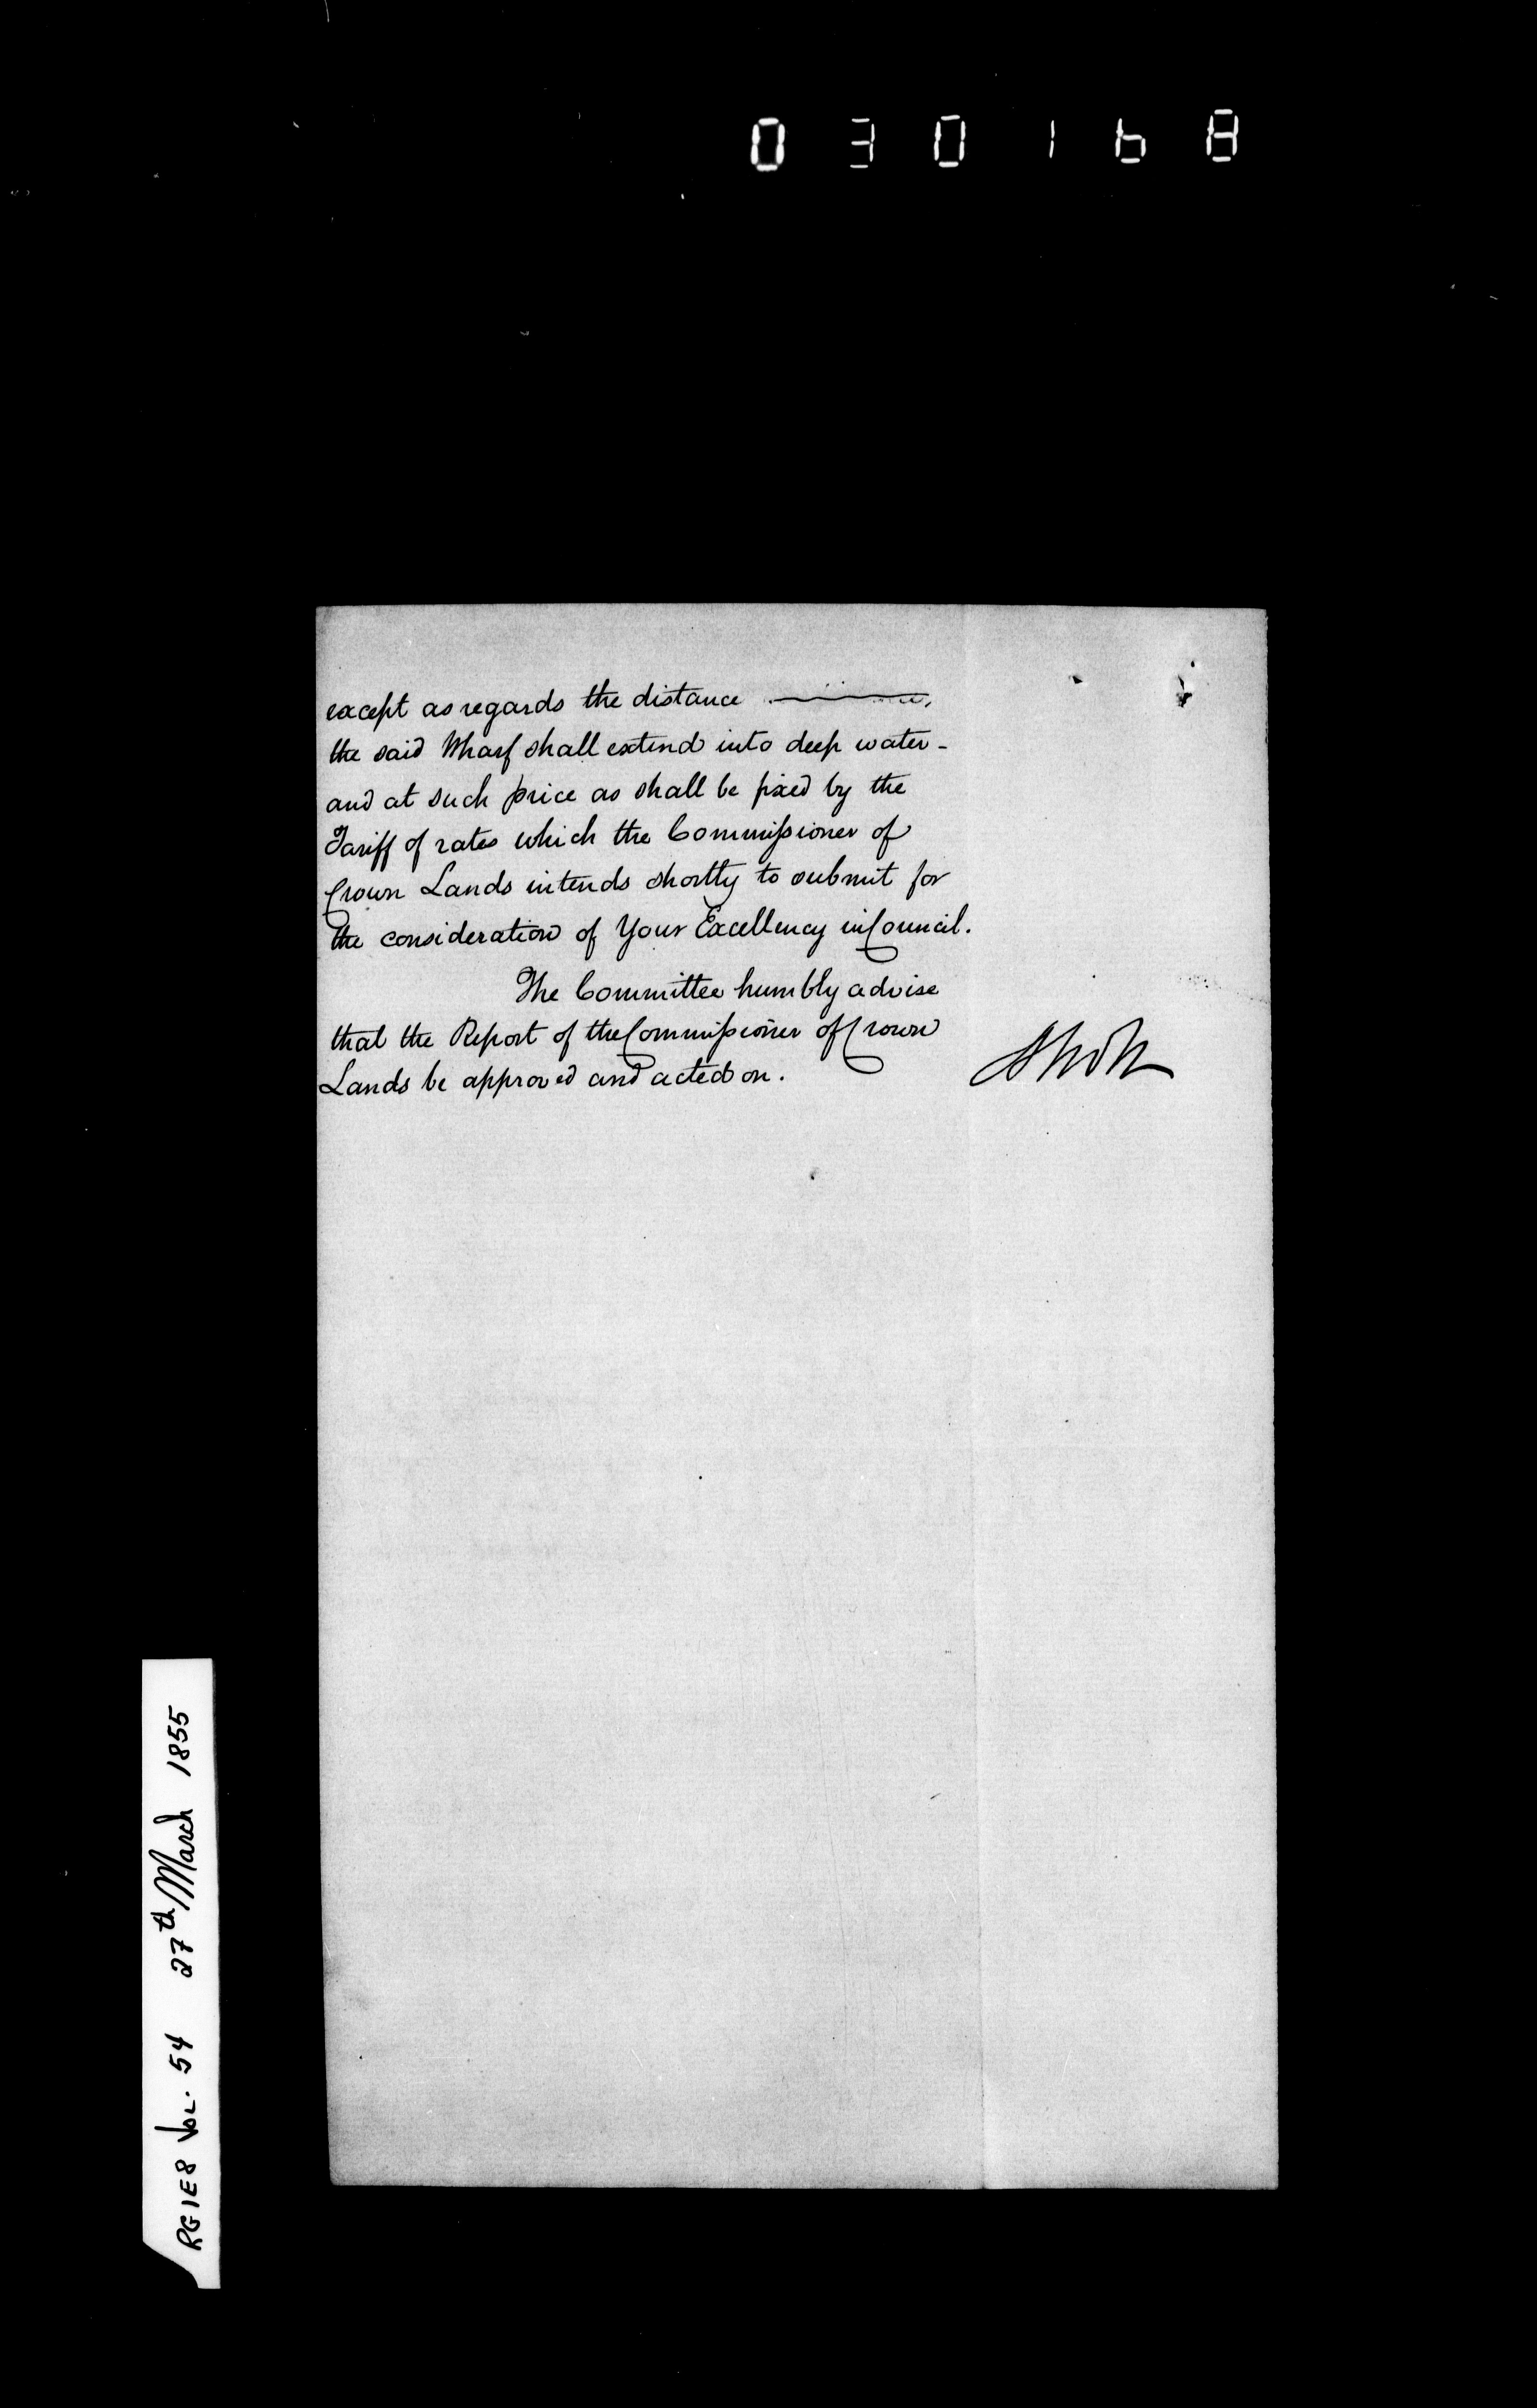 030168
except as regards the distance
the said Wharf shall extend into deep water -
and at such price as shall be fixed by the
Tariff of rates which the Commissioner of
Crown Lands intends shortly to submit for
the consideration of Your Excellency in Council.
The Committee humbly advise
that the Report of the Commissioner of Crown
Lands be approved and acted on.
RG1E8 Vol. 54 27th March 1855